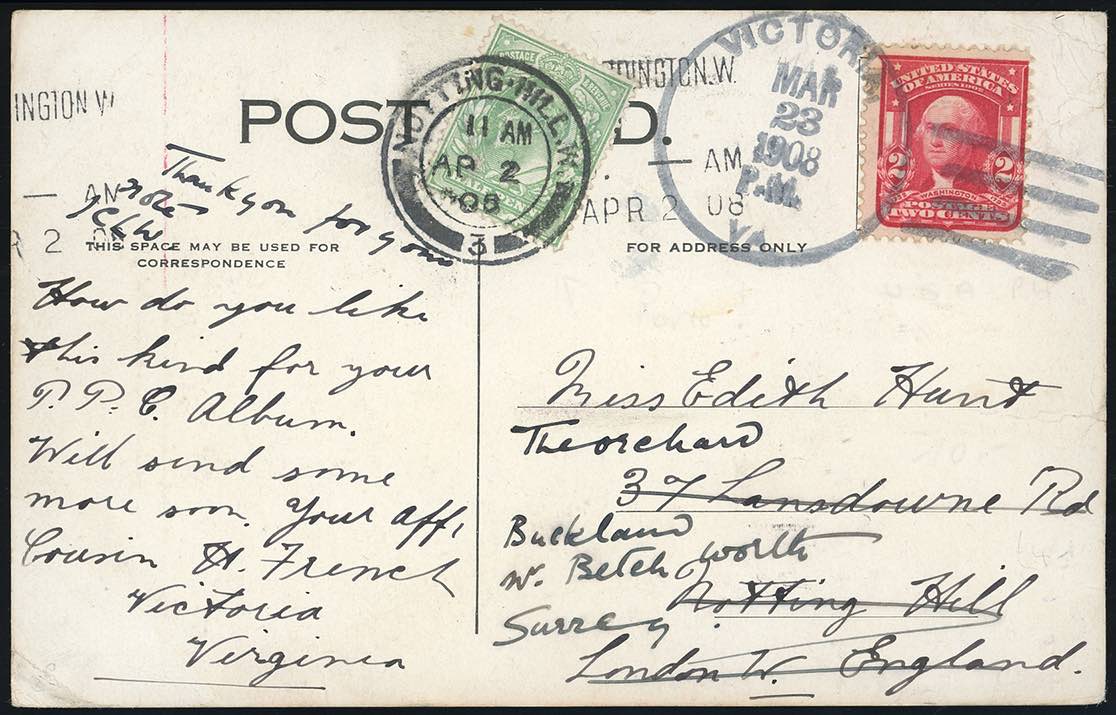 POST
D.
INGTON W
DINGTON.W.
NOTTING-HILL.W.
11 AM
AP 2
08
3
POSTAGE
REVENUE
VICTORIA
MAR
23
1908
P.M.
VA
— AM
APR 2 08
— AM
2
UNITED STATES
OF AMERICA
SERIES 1902
2 2
WASHINGTON
POSTAGE
TWO CENTS
Thank you for your
note
THIS SPACE MAY BE USED FOR
CORRESPONDENCE
FOR ADDRESS ONLY
How do you like
this kind for your
P. P. C. Album.
Will send some
more soon. Your aff,
Cousin H. French
Victoria
Virginia
Miss Edith Hunt
The orchard
37 Lansdowne Rd
Buckland
Nr. Betchworth
Notting Hill
Surrey.
London W. England.